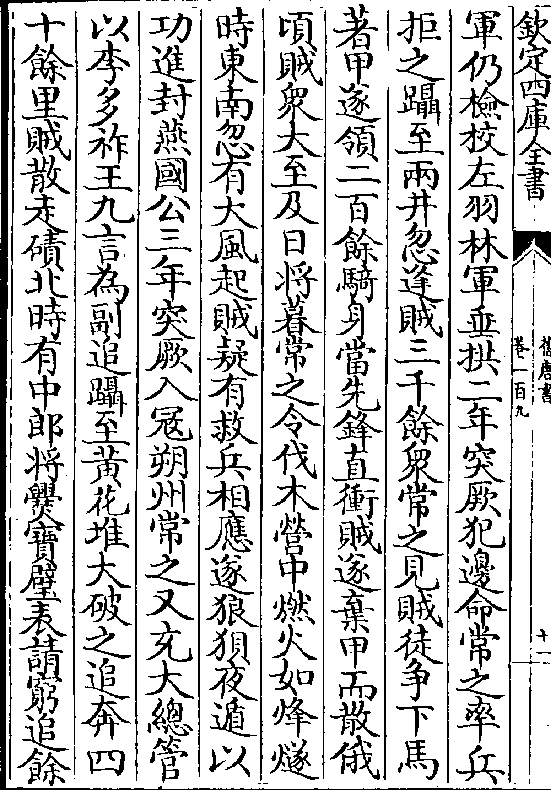 欽定四庫全書
舊唐書
卷一百九
十一
軍仍檢校左羽林軍垂拱二年突厥犯邊命常之率兵
拒之躡至兩井忽逢賊三千餘衆常之見賊徒争下馬
著甲遂領二百餘騎身當先鋒直衝賊遂棄甲而散俄
頃賊衆大至及日将暮常之令伐木營中燃火如烽燧
時東南忽有大風起賊疑有救兵相應遂狼狽夜遁以
功進封燕國公三年突厥入冦朔州常之又充大總管
以李多祚王九言為副追躡至黄花堆大破之追奔四
十餘里賊散走磧北時有中郎将爨寶璧表請窮追餘